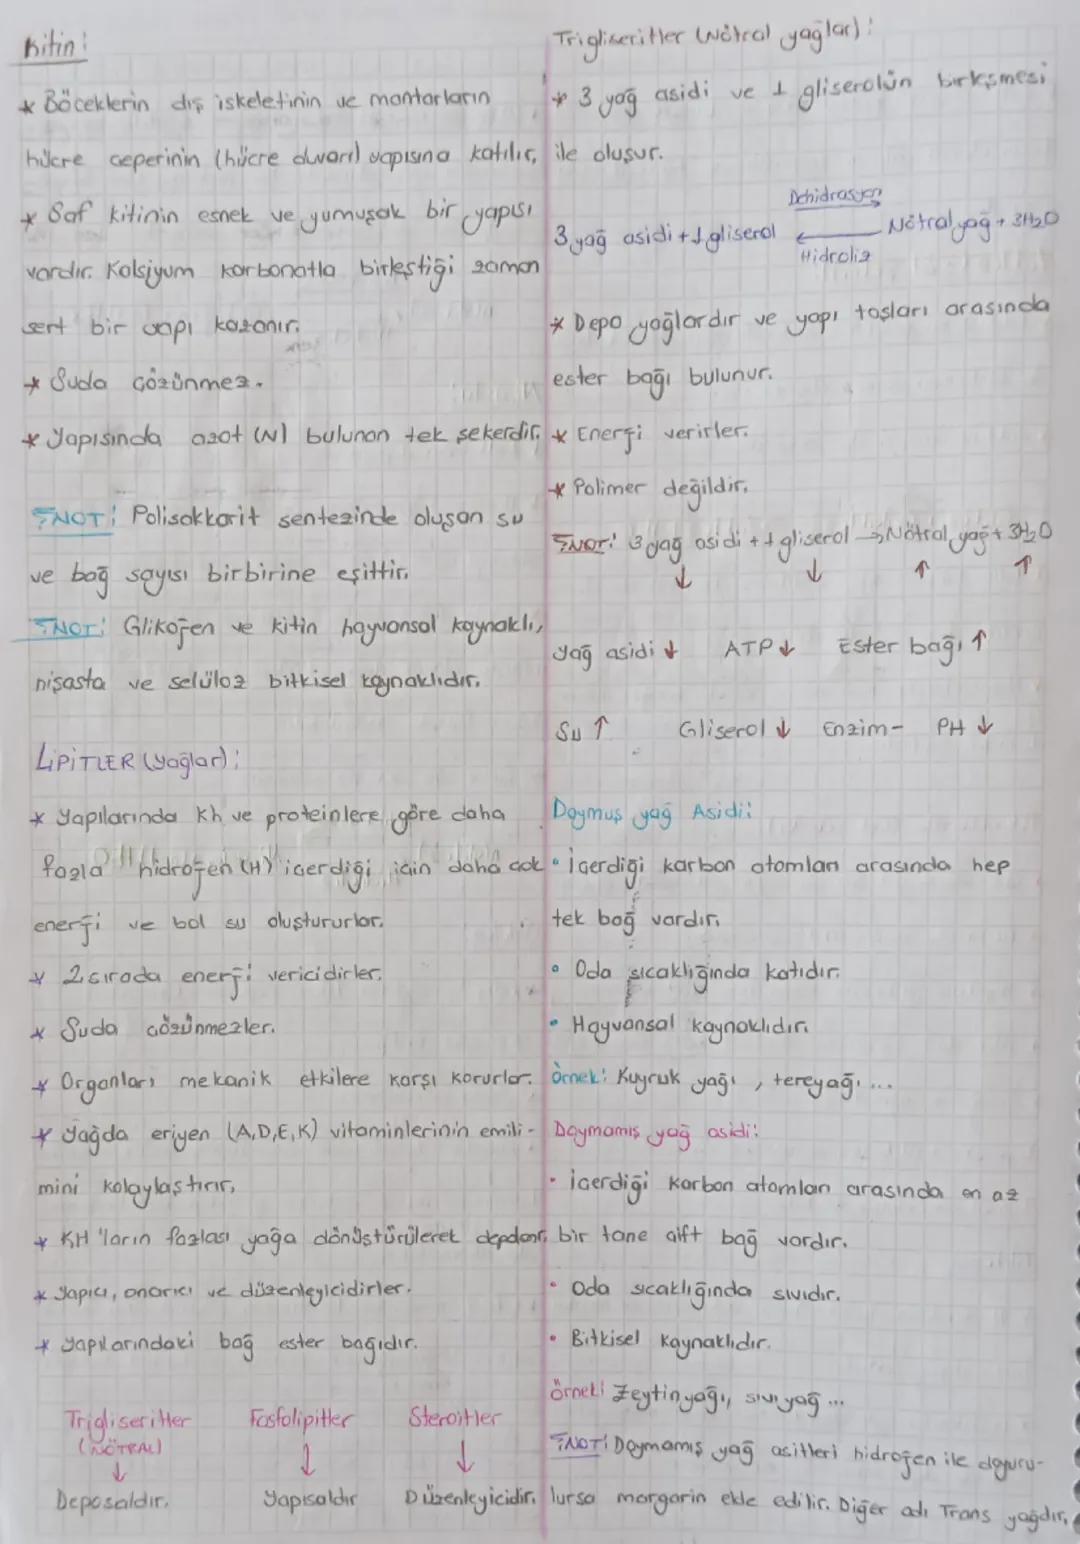 Kitin:
* Böceklerin dış iskeletinin ve mantarların
hücre çeperinin (hücre duvarı) yapısına katılır.
* Saf kitinin esnek ve yumuşak bir yapısı
vardır. Kalsiyum karbonatla birleştiği zaman
sert bir yapı kazanır.
* Suda çözünmez.
* Yapısında azot (N) bulunan tek şekerdir.
NOT: Polisakkarit sentezinde oluşan su
ve bağ sayısı birbirine eşittir.
NOT: Glikojen ve kitin hayvansal kaynaklı,
nişasta ve selüloz bitkisel kaynaklıdır.
LİPİTLER (Yağlar):
* Yapılarında Kh ve proteinlere göre daha
fazla hidrojen (H) içerdiği için daha çok
enerji ve bol su oluştururlar.
* 2.sırada enerji vericidirler.
* Suda çözünmezler.
* Organları mekanik etkilere karşı korurlar.
* Yağda eriyen (A,D,E,K) vitaminlerinin emili-
mini kolaylaştırır.
* KH'ların fazlası yağa dönüştürülerek depolanır.
* Yapıcı, onarıcı ve düzenleyicidirler.
* Yapılarındaki bağ ester bağıdır.
Trigliseritler Fosfolipitler Steroitler
(NÖTRAL) ↓ ↓
↓
Deposaldır. Yapısaldır Düzenleyicidir.
Trigliseritler (Nötral yağlar):
* 3 yağ asidi ve 1 gliserolün birleşmesi
ile oluşur.
Dehidrasyon
3 yağ asidi + 1 gliserol ← Nötral yağ + 3H₂O
Hidroliz
* Depo yağlardır ve yapı taşları arasında
ester bağı bulunur.
* Enerji verirler.
* Polimer değildir.
NOT: 3 yağ asidi + 1 gliserol → Nötral yağ + 3H₂O
↓ ↓ ↑ ↑
Yağ asidi ↓ ATP ↓ Ester bağı ↑
Su ↑ Gliserol ↓ Enzim - PH ↓
Doymuş yağ Asidi:
• İçerdiği karbon atomları arasında hep
tek bağ vardır.
• Oda sıcaklığında katıdır.
• Hayvansal kaynaklıdır.
Örnek: Kuyruk yağı, tereyağı ...
Doymamış yağ asidi:
• İçerdiği karbon atomları arasında en az
bir tane çift bağ vardır.
• Oda sıcaklığında sıvıdır.
• Bitkisel kaynaklıdır.
Örnek: Zeytinyağı, sıvıyağ ...
NOT: Doymamış yağ asitleri hidrojen ile doyuru-
lursa margarin elde edilir. Diğer adı Trans yağdır.